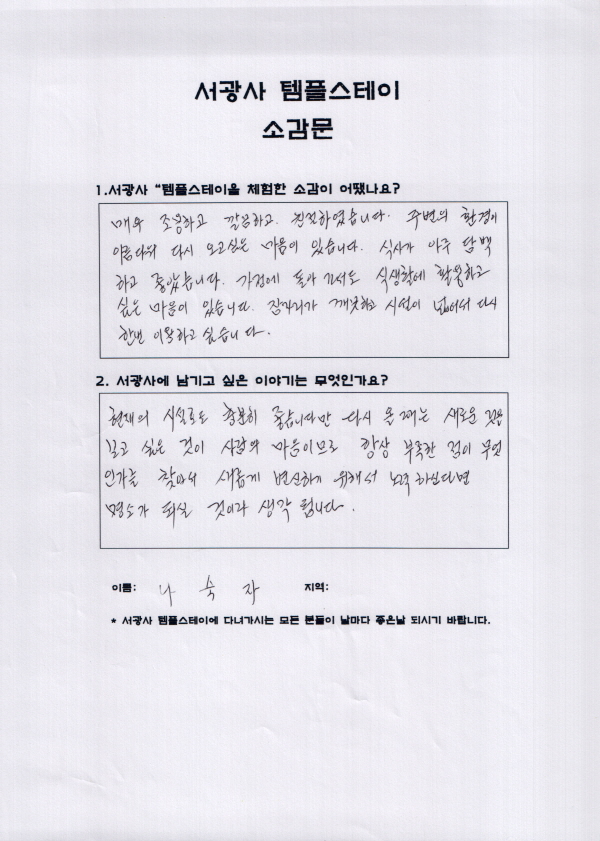 서광사 템플스테이
소감문
1.서광사 "템플스테이을 체험한 소감이 어땠나요?
매우 조용하고 깔끔하고. 친절하였습니다. 주변의 환경이
아름다워 다시 오고싶은 마음이 있습니다. 식사가 아주 담백
하고 좋았습니다. 가정에 돌아가서도 식생활에 활용하고
싶은 마음이 있습니다. 잠자리가 깨끗하고 시설이 넓어서 다시
한번 이용하고 싶습니다.
2. 서광사에 남기고 싶은 이야기는 무엇인가요?
현재의 시설로도 충분히 좋습니다만 다시 올 때는 새로운 것을
보고 싶은 것이 사람의 마음이므로 항상 부족한 점이 무엇
인가를 찾아서 새롭게 변신하기 위해서 노력하신다면
명소가 되실 것이라 생각 됩니다.
이름: 나 숙 자 지역:
* 서광사 템플스테이에 다녀가시는 모든 분들이 날마다 좋은날 되시기 바랍니다.